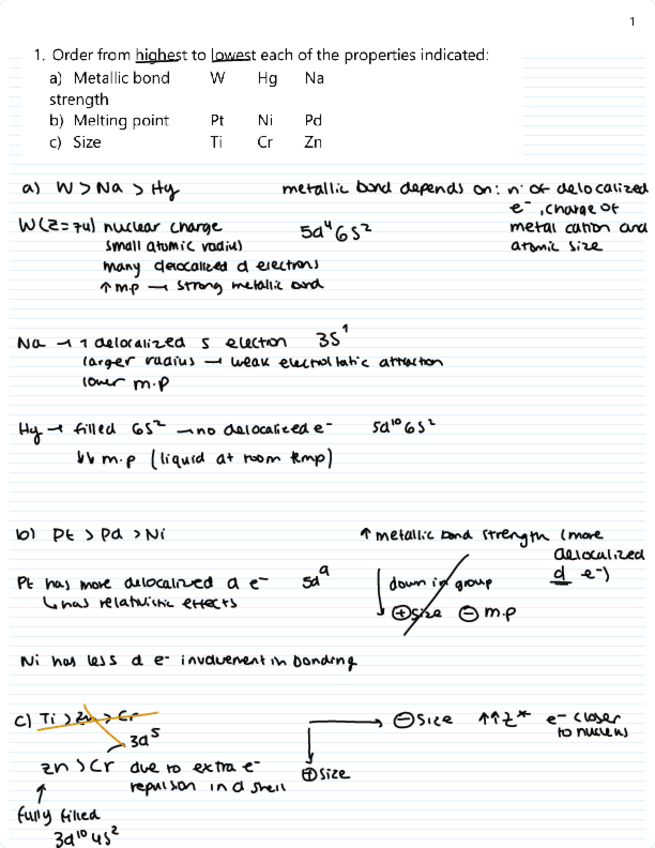 1
1. Order from highest to lowest each of the properties indicated:
a) Metallic bond strength W Hg Na
b) Melting point Pt Ni Pd
c) Size Ti Cr Zn
a) W > Na > Hg
metallic bond depends on: n° of delocalized
e-, charge of
metal cation and
atomic size
W (Z=74) nuclear charge
small atomic radius
many delocalized d electrons
↑ m.p → strong metallic bond
5d⁴6s²
Na → 1 delocalized s electron 3s¹
larger radius → weak electrostatic attraction
lower m.p
Hg → filled 6s² → no delocalized e- 5d¹⁰6s²
↓↓ m.p (liquid at room temp)
b) Pt > Pd > Ni
↑ metallic bond strength (more
delocalized
d e-)
Pt has more delocalized d e- 5d⁹
↳ has relativistic effects
down in group
⊕ size ⊖ m.p
Ni has less d e- involvement in bonding
c) Ti > Zn > Cr
3d⁵
Zn > Cr due to extra e-
repulsion in d shell
↑
fully filled
3d¹⁰4s²
→ ⊖ size ↑↑Z* e- closer
to nucleus
⊕ size